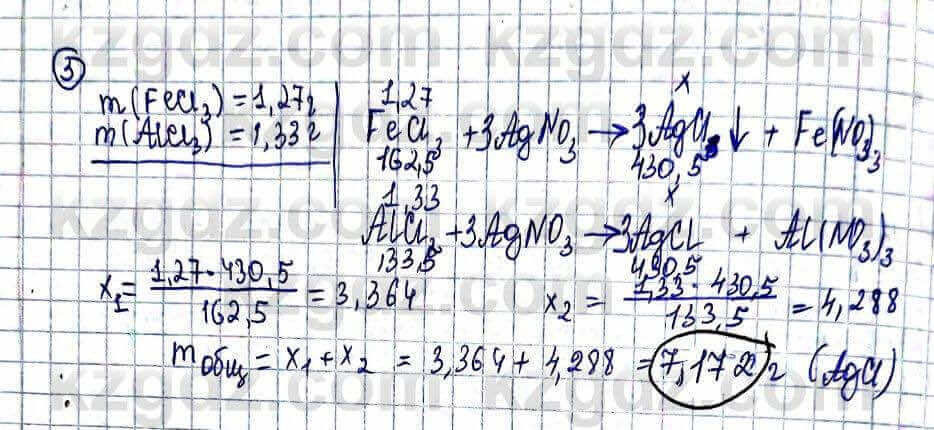 3
m(FeCl3) = 1,27г
m(AlCl3) = 1,33г
1,27 x
FeCl3 + 3AgNO3 → 3AgCl ↓ + Fe(NO3)3
162,5 430,5
1,33 x
AlCl3 + 3AgNO3 → 3AgCl + Al(NO3)3
133,5 430,5
x1 = 1,27 · 430,5 / 162,5 = 3,364 x2 = 1,33 · 430,5 / 133,5 = 4,288
mобщ = x1 + x2 = 3,364 + 4,288 = 7,172 г (AgCl)
kzgdz.com